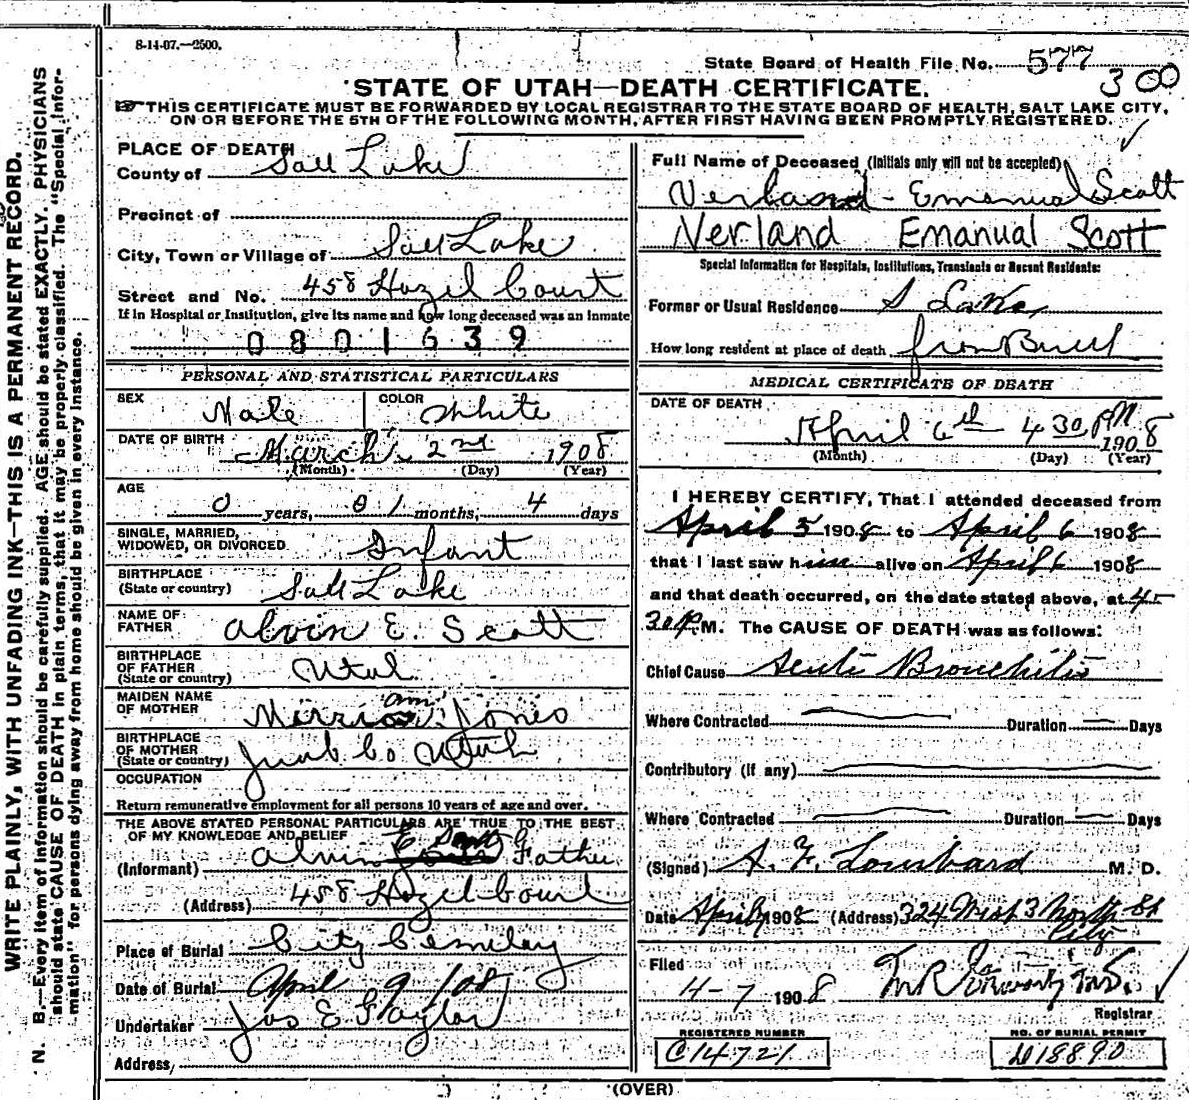 8-14-07.—2500.
State Board of Health File No. 577
300
STATE OF UTAH—DEATH CERTIFICATE.
THIS CERTIFICATE MUST BE FORWARDED BY LOCAL REGISTRAR TO THE STATE BOARD OF HEALTH, SALT LAKE CITY,
ON OR BEFORE THE 5TH OF THE FOLLOWING MONTH, AFTER FIRST HAVING BEEN PROMPTLY REGISTERED.
WRITE PLAINLY, WITH UNFADING INK—THIS IS A PERMANENT RECORD.
N. B.—Every item of information should be carefully supplied. AGE should be stated EXACTLY. PHYSICIANS
should state CAUSE OF DEATH in plain terms, that it may be properly classified. The "Special Infor-
mation" for persons dying away from home should be given in every instance.
PLACE OF DEATH
County of Salt Lake
Precinct of
City, Town or Village of Salt Lake
Street and No. 458 Hazel Court
If in Hospital or Institution, give its name and how long deceased was an inmate
0801639
PERSONAL AND STATISTICAL PARTICULARS
SEX Male COLOR White
DATE OF BIRTH March 2nd 1908
(Month) (Day) (Year)
AGE 0 years, 1 months, 4 days
SINGLE, MARRIED,
WIDOWED, OR DIVORCED Infant
BIRTHPLACE
(State or country) Salt Lake
NAME OF
FATHER Alvin E. Scott
BIRTHPLACE
OF FATHER
(State or country) Utah
MAIDEN NAME
OF MOTHER Mirriam Jones
BIRTHPLACE
OF MOTHER
(State or country) Juab Co Utah
OCCUPATION
Return remunerative employment for all persons 10 years of age and over.
THE ABOVE STATED PERSONAL PARTICULARS ARE TRUE TO THE BEST
OF MY KNOWLEDGE AND BELIEF
(Informant) Alvin E Scott Father
(Address) 458 Hazel Court
Place of Burial City Cemetery
Date of Burial April 9/08
Undertaker Jos E Taylor
Address,
Full Name of Deceased (Initials only will not be accepted)
Verland Emanual Scott
Verland Emanual Scott
Special Information for Hospitals, Institutions, Transients or Recent Residents:
Former or Usual Residence S Lake
How long resident at place of death from Birth
MEDICAL CERTIFICATE OF DEATH
DATE OF DEATH
April 6th 4 30 PM 1908
(Month) (Day) (Year)
I HEREBY CERTIFY, That I attended deceased from
April 5 1908 to April 6 1908
that I last saw him alive on April 6 1908
and that death occurred, on the date stated above, at 4
30 P.M. The CAUSE OF DEATH was as follows:
Chief Cause Acute Bronchitis
Where Contracted Duration Days
Contributory (if any)
Where Contracted Duration Days
(Signed) A. F. Lombard M. D.
Date April 7 1908 (Address) 324 West 3 North St
City
Filed
4-7 1908
Registrar
REGISTERED NUMBER
C14721
NO. OF BURIAL PERMIT
D18890
(OVER)